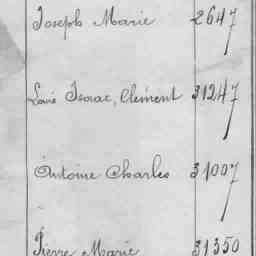 Joseph Marie 2647
Louis Isaac, Clément 31247
Antoine Charles 31007
Pierre Marie 31350